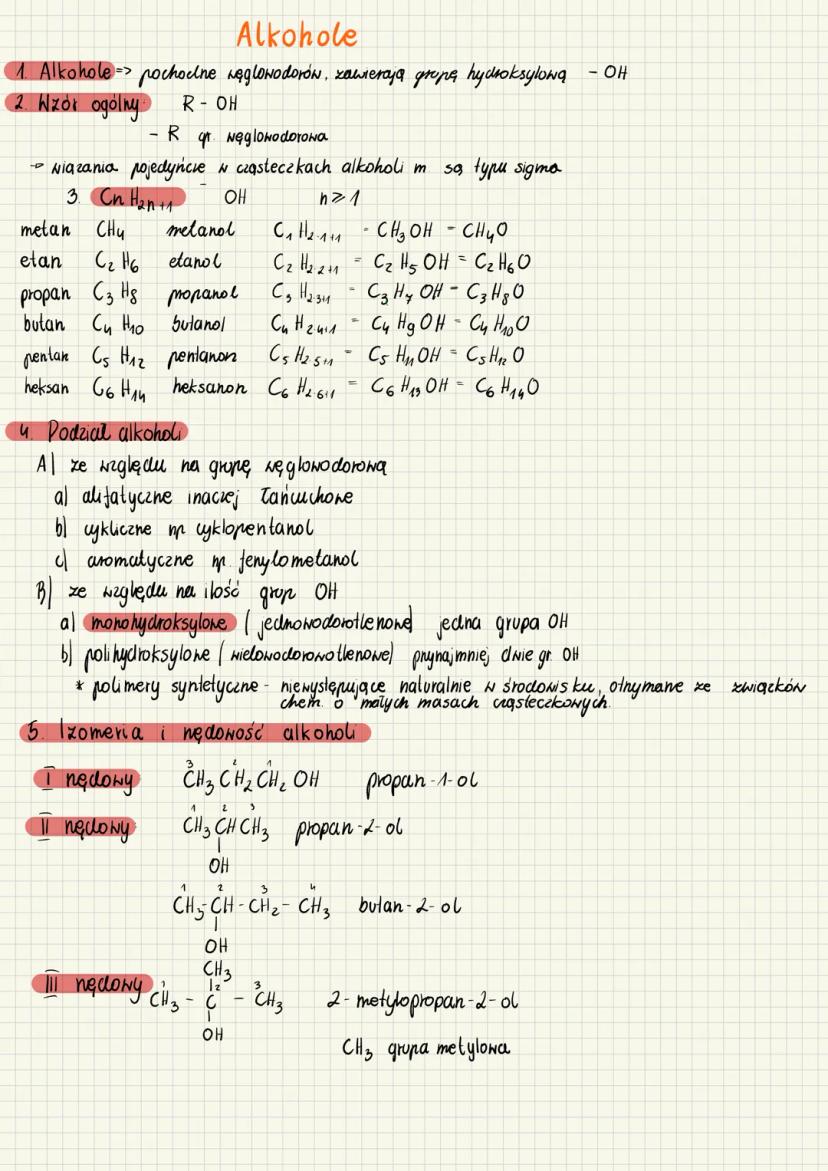 Alkohole
1. Alkohole => pochodne węglowodorów, zawierają grupę hydroksylową - OH
2. Wzór ogólny: R - OH
- R gr. węglowodorowa
→ wiązania pojedyńcze w cząsteczkach alkoholi m są typu sigma
3. CnH2n+1 - OH n ≥ 1
metan CH4 metanol C1 H2·1+1 - CH3 OH - CH4O
etan C2 H6 etanol C2 H2·2+1 = C2 H5 OH = C2H6O
propan C3 H8 propanol C3 H2·3+1 - C3 H7 OH - C3H8O
butan C4 H10 butanol C4 H2·4+1 - C4 H9 OH - C4 H10O
pentan C5 H12 pentanon C5 H2·5+1 - C5 H11 OH = C5H12 O
heksan C6 H14 heksanon C6 H2·6+1 = C6 H13 OH = C6 H14O
4. Podział alkoholi
A) ze względu na grupę węglowodorową
a) alifatyczne inaczej łańcuchowe
b) cykliczne np cyklopentanol
c) aromatyczne np. fenylometanol
B) ze względu na ilość grup OH
a) monohydroksylowe (jednowodorotlenowe) jedna grupa OH
b) polihydroksylowe (wielowodorowotlenowe) przynajmniej dwie gr. OH
* polimery syntetyczne - niewystępujące naturalnie w środowisku, otrzymane ze związków
chem. o małych masach cząsteczkowych.
5. Izomeria i rzędowość alkoholi
3 2 1
I rzędowy CH3 CH2 CH2 OH propan-1-ol
1 2 3
II rzędowy CH3 CH CH3 propan-2-ol
OH
1 2 3 4
CH3-CH-CH2-CH3 butan-2-ol
OH
CH3
1 2 3
III rzędowy CH3 - C - CH3 2-metylopropan-2-ol
OH
CH3 grupa metylowa